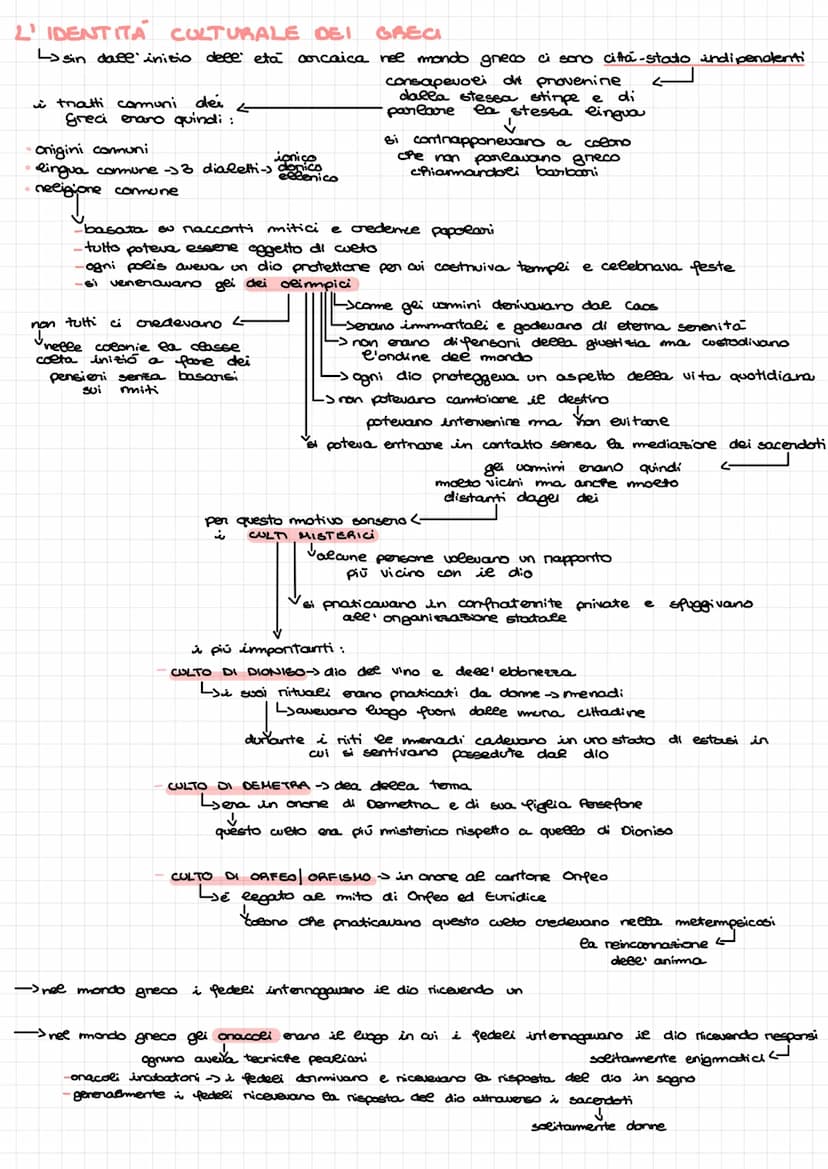 L'IDENTITÁ CULTURALE DEI GRECI
↳ sin dall'inizio dell'etá arcaica nel mondo greco ci sono cittá-stato indipendenti
consapevoli di provenire
dalla stessa stirpe e di
parlare la stessa lingua
si contrapponevano a coloro
che non parlavano greco
chiamandoli barbari
i tratti comuni dei
Greci erano quindi :
• origini comuni
• lingua comune -> 3 dialetti ->
ionico
dorico
ellenico
• religione comune
- basata su racconti mitici e credenze popolari
- tutto poteva essere oggetto di culto
- ogni polis aveva un dio protettore per cui costruiva templi e celebrava feste
- si veneravano gli dei olimpici
non tutti ci credevano
nelle colonie la classe
colta inizió a fare dei
pensieri senza basarsi
sui miti
come gli uomini derivavano dal Caos
erano immortali e godevano di eterna serenitá
non erano difensori della giustizia ma custodivano
l'ordine del mondo
ogni dio proteggeva un aspetto della vita quotidiana
non potevano cambiare il destino
potevano intervenire ma non evitare
si poteva entrare in contatto senza la mediazione dei sacerdoti
gli uomini erano quindi
molto vicini ma anche molto
distanti dagli dei
per questo motivo sorsero
i CULTI MISTERICI
alcune persone volevano un rapporto
piú vicino con il dio
si praticavano in confraternite private e sfuggivano
all'organizzazione statale
i piú importanti :
- CULTO DI DIONISO -> dio del vino e dell'ebbrezza
↳ i suoi rituali erano praticati da donne -> menadi
↳ avevano luogo fuori dalle mura cittadine
durante i riti le menadi cadevano in uno stato di estasi in
cui si sentivano possedute dal dio
- CULTO DI DEMETRA -> dea della terra
↳ era in onore di Demetra e di sua figlia Persefone
questo culto era piú misterico rispetto a quello di Dioniso
- CULTO DI ORFEO/ORFISMO -> in onore al cantore Orfeo
↳ é legato al mito di Orfeo ed Euridice
coloro che praticavano questo culto credevano nella metempsicosi
la reincarnazione
dell'anima
-> nel mondo greco i fedeli interrogavano il dio ricevendo un
-> nel mondo greco gli oracoli erano il luogo in cui i fedeli interrogavano il dio ricevendo responsi
ognuno aveva tecniche peculiari
solitamente enigmatici
- oracoli incubatori -> i fedeli dormivano e ricevevano la risposta del dio in sogno
- generalmente i fedeli ricevevano la risposta del dio attraverso i sacerdoti
solitamente donne